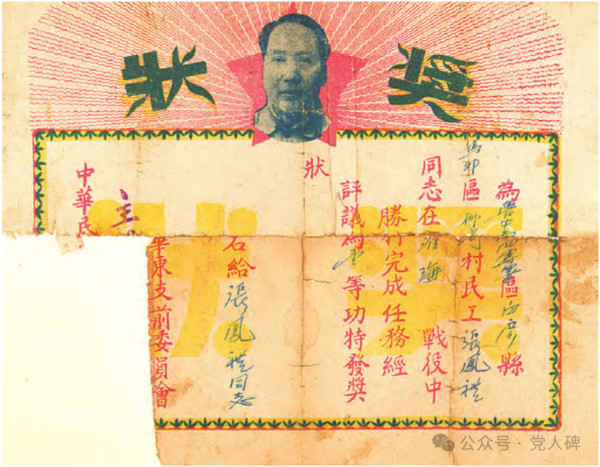 奬狀
為魯中南區縣
馮卯區村民工張鳳禮
同志在淮海戰役中
勝利完成任務經
評議為等功特發獎
狀
右給張鳳禮同志
華東支前委員會
主
中華民
公众号·党人碑